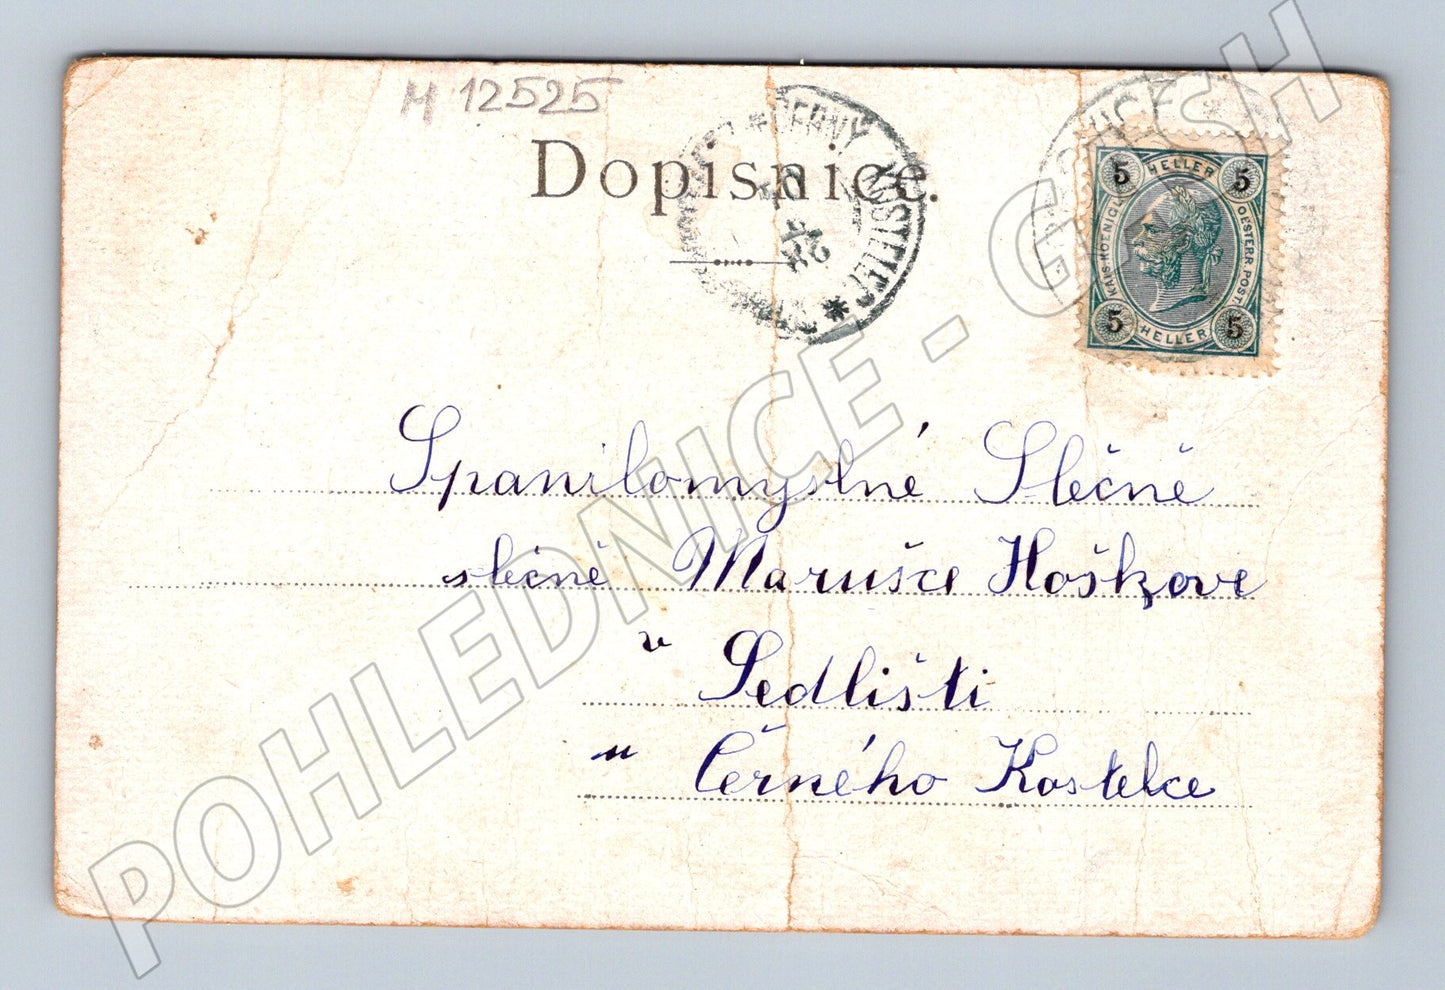 M 12525
Dopisnice.
ČERNY KOSTELEC
5 HELLER 5
KAIS. KÖNIGL. OESTERR. POST.
5 HELLER 5
Spanilomyslné Slečně
slečně Marušce Hoškove
v Sedlišti
u Černého Kostelce
POHLEDNICE - CASH